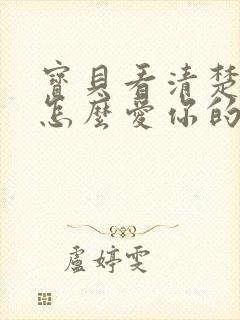 寶貝看清楚
怎麼愛你的
盧婷雯